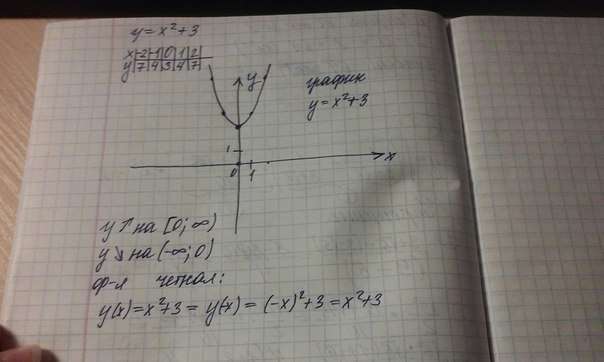 y = x² + 3
x -2 -1 0 1 2
y 7 4 3 4 7
y
график
y = x² + 3
1
x
0 1
y ↑ на [0; ∞)
y ↘ на (-∞; 0)
ф-я четная:
y(x) = x² + 3 = y(-x) = (-x)² + 3 = x² + 3